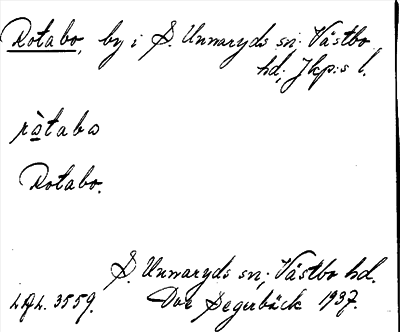 Rotabo, by i S. Unnaryds sn; Västbo
hd; Jkp:s l.
ròtabo
Rotabo.
S. Unnaryds sn; Västbo hd.
LAL. 3559. Dav Segerbäck 1937.